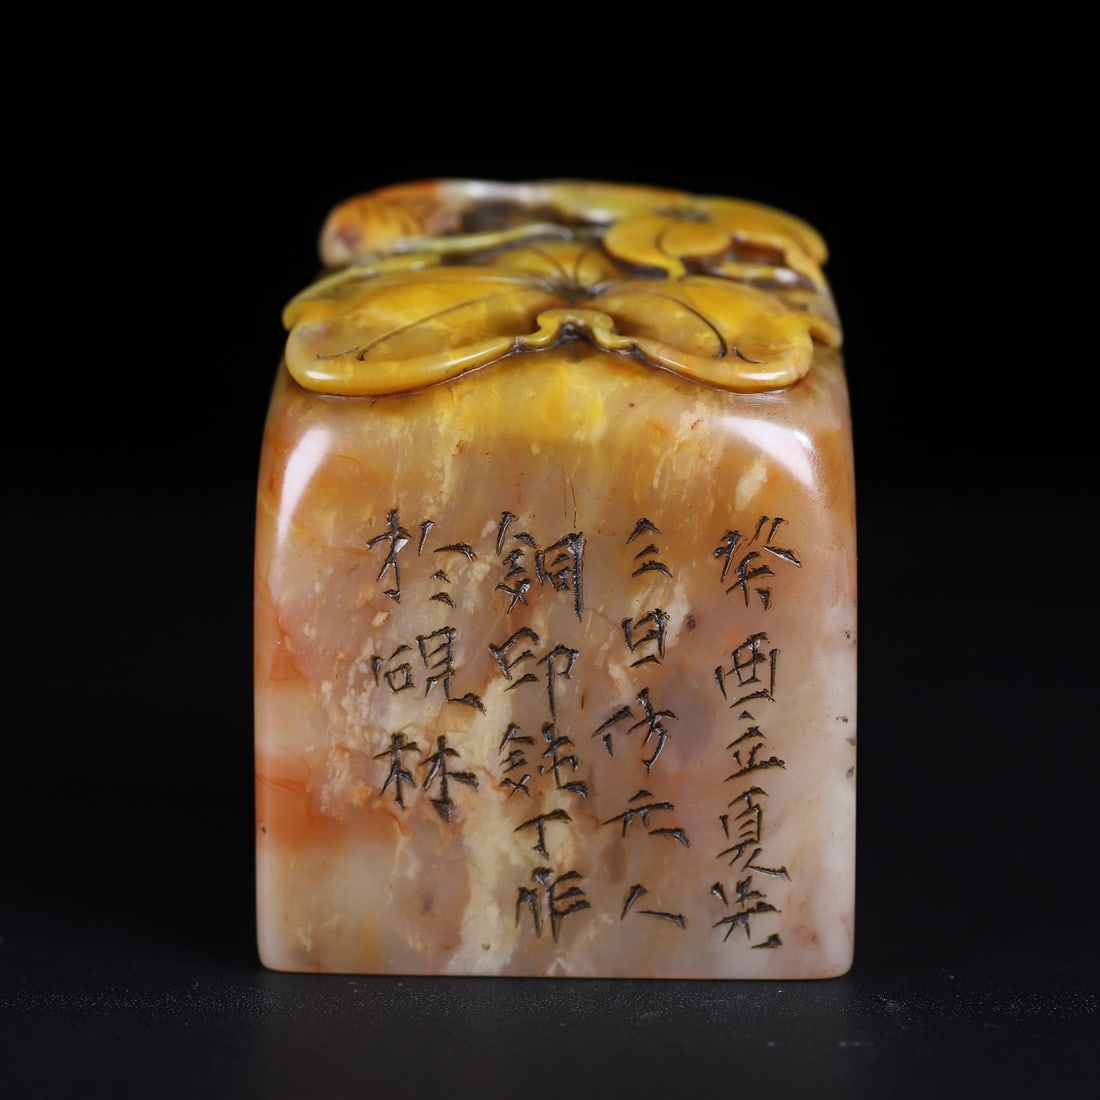 癸酉立夏先
三日仿元人
銅印鈍丁作
於硯林